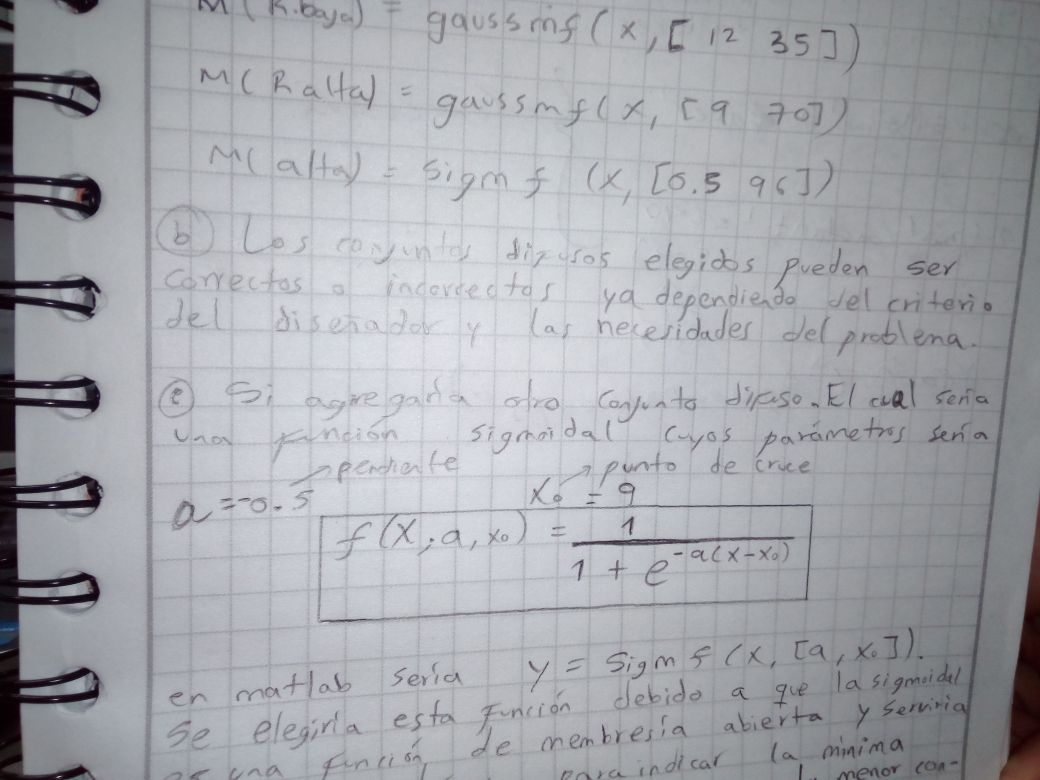 M(R.baja) = gaussmf(x,[ 12 35])
M(R alta) = gaussmf(x, [9 70])
M(alta) = Sigmf (x, [0.5 96])
b Los conjuntos difusos elegidos pueden ser
correctos o incorrectos ya dependiendo del criterio
del diseñador y las necesidades del problema.
c Si agregaría otro conjunto difuso. El cual sería
una función sigmoidal cuyos parámetros sería
pendiente punto de cruce
a = -0.5 x₀ = 9
f(x; a, x₀) = 1 / 1 + e^-a(x-x₀)
en matlab sería y = Sigmf(x, [a, x₀]).
Se elegiría esta función debido a que la sigmoidal
es una función de membresía abierta y serviría
para indicar la mínima
menor con-